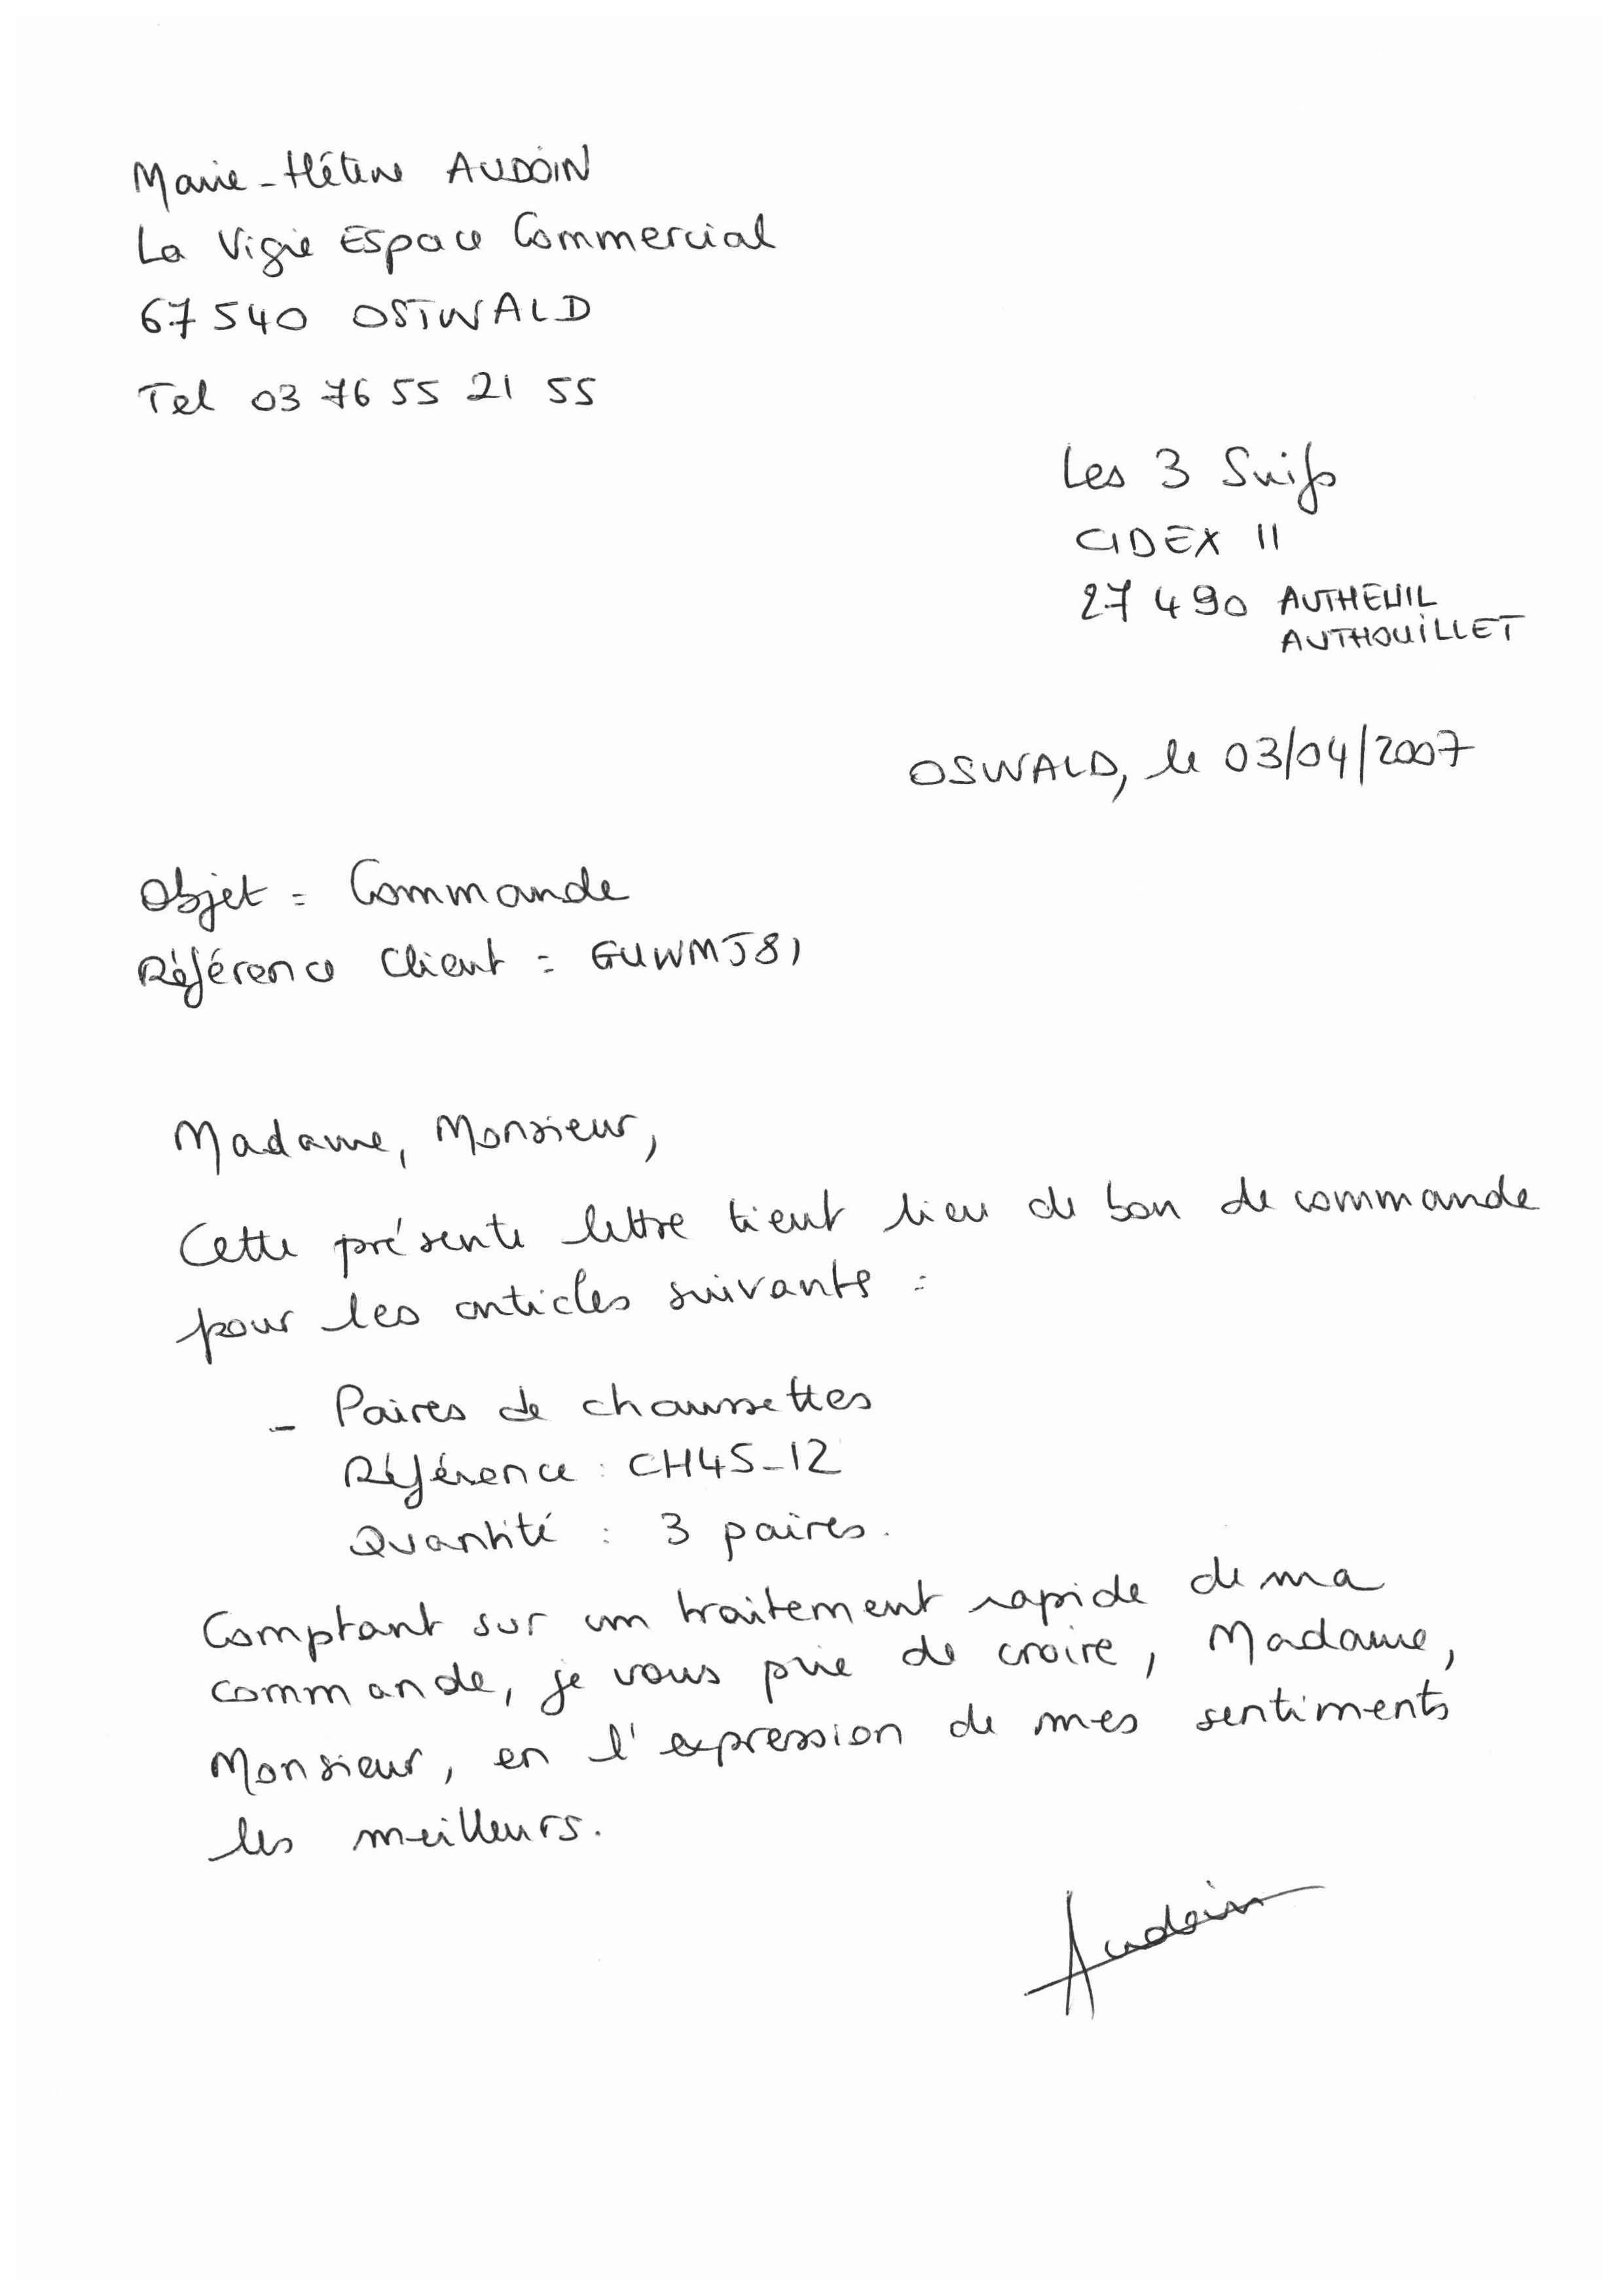 Marie-Hélène AUDOIN
La Vigie Espace Commercial
67540 OSTWALD
Tel 03 76 55 21 55
Les 3 Suifs
CIDEX 11
27490 AUTHEUIL
AUTHOUILLET
OSWALD, le 03/04/2007
Objet : Commande
Référence Client : GUWMJ81
Madame, Monsieur,
Cette présente lettre tient lieu de bon de commande
pour les articles suivants :
- Paires de chaussettes
Référence : CH45-12
Quantité : 3 paires.
Comptant sur un traitement rapide de ma
commande, je vous prie de croire, Madame,
Monsieur, en l'expression de mes sentiments
les meilleurs.
Audoin